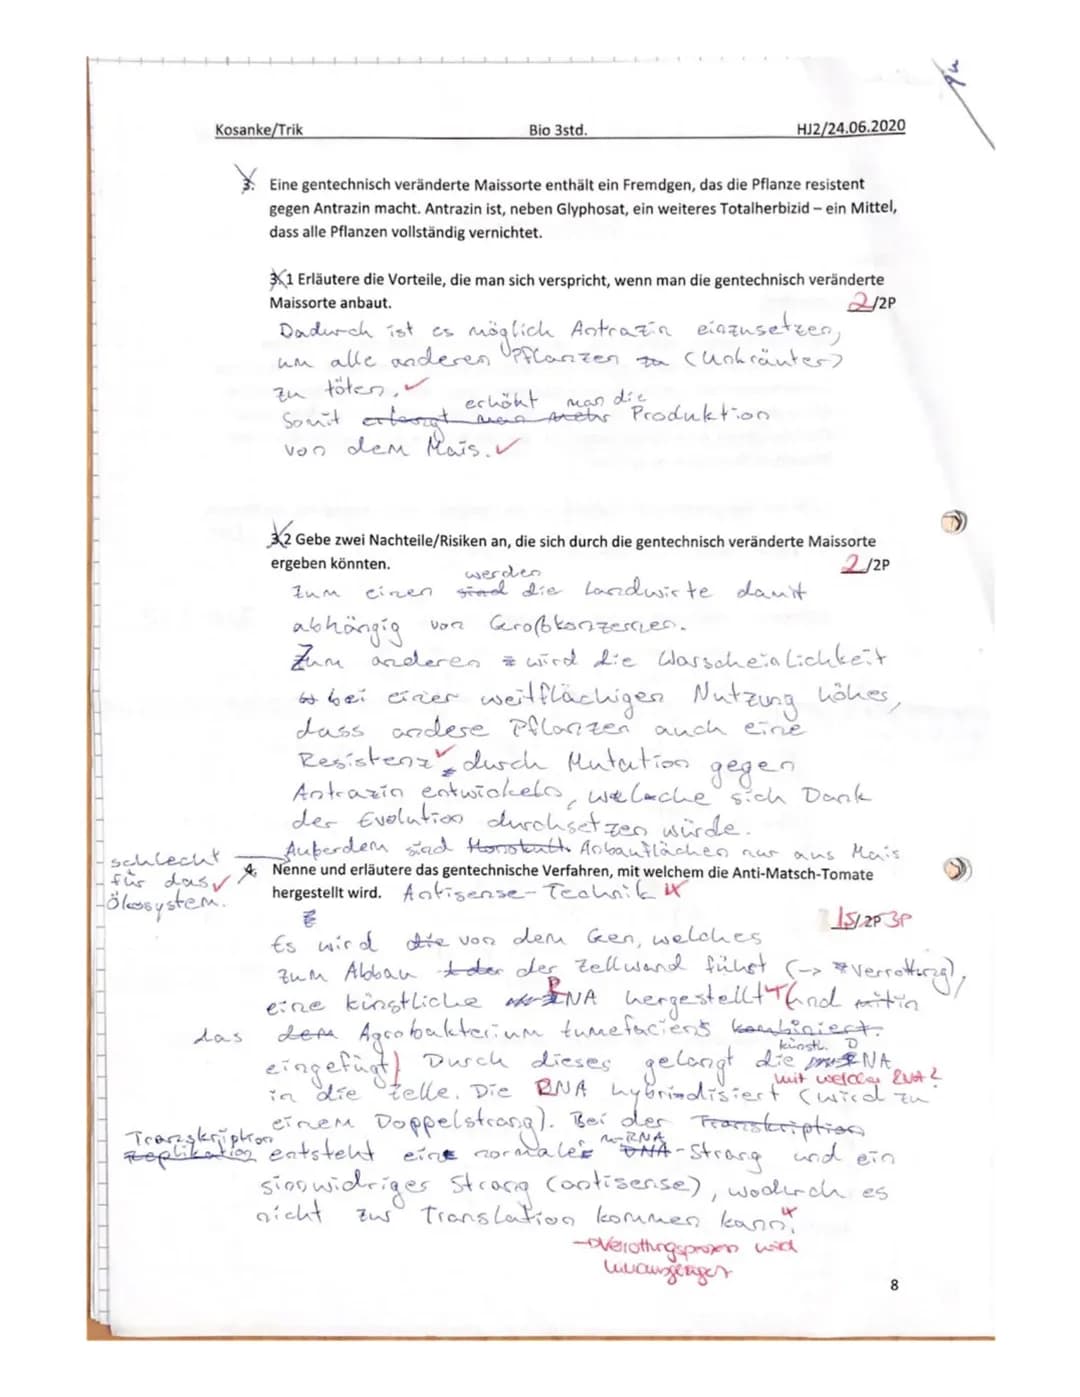 Kosanke/Trik Bio 3std. HJ2/24.06.2020
3. Eine gentechnisch veränderte Maissorte enthält ein Fremdgen, das die Pflanze resistent
gegen Antrazin macht. Antrazin ist, neben Glyphosat, ein weiteres Totalherbizid – ein Mittel,
dass alle Pflanzen vollständig vernichtet.
3.1 Erläutere die Vorteile, die man sich verspricht, wenn man die gentechnisch veränderte
Maissorte anbaut. 2/2P
Dadurch ist es möglich Antrazin einzusetzen,
um alle anderen Pflanzen zu (Unkräuter)
zu töten. ✓
erhöht man die
Somit erlangt man mehr Produktion
von dem Mais. ✓
3.2 Gebe zwei Nachteile/Risiken an, die sich durch die gentechnisch veränderte Maissorte
ergeben könnten. 2/2P
werden
Zum einen sind die Landwirte damit
abhängig von Großkonzernen.
Zum anderen wird die Warscheinlichkeit
bei einer weitflächigen Nutzung höher,
dass andere Pflanzen auch eine
Resistenz ✓ durch Mutation gegen
Antrazin entwickeln, welche sich Dank
der Evolution durchsetzen würde.
Außerdem sind Anbauflächen nur aus Mais
schlecht
für das ✓
Ökosystem.
4. Nenne und erläutere das gentechnische Verfahren, mit welchem die Anti-Matsch-Tomate
hergestellt wird. Antisense-Technik
1,5/2P 3P
Es wird die von dem Gen, welches
zum Abbau der Zellwand führt (-> Verrottung),
eine künstliche RNA hergestellt und mit in
das dem Agrobakterium tumefaciens kombiniert.
künstl. D
eingefügt) Durch dieses gelangt die NA
mit welcher RNA?
in die Zelle. Die RNA hybridisiert (wird zu
einem Doppelstrang). Bei der Transkription
Transkription
Replikation entsteht eine normaler DNA-Strang und ein
m-RNA
sinnwidriger Strang (antisense), wodurch es
nicht zur Translation kommen kann.
→ Verottungsprozess wird
8